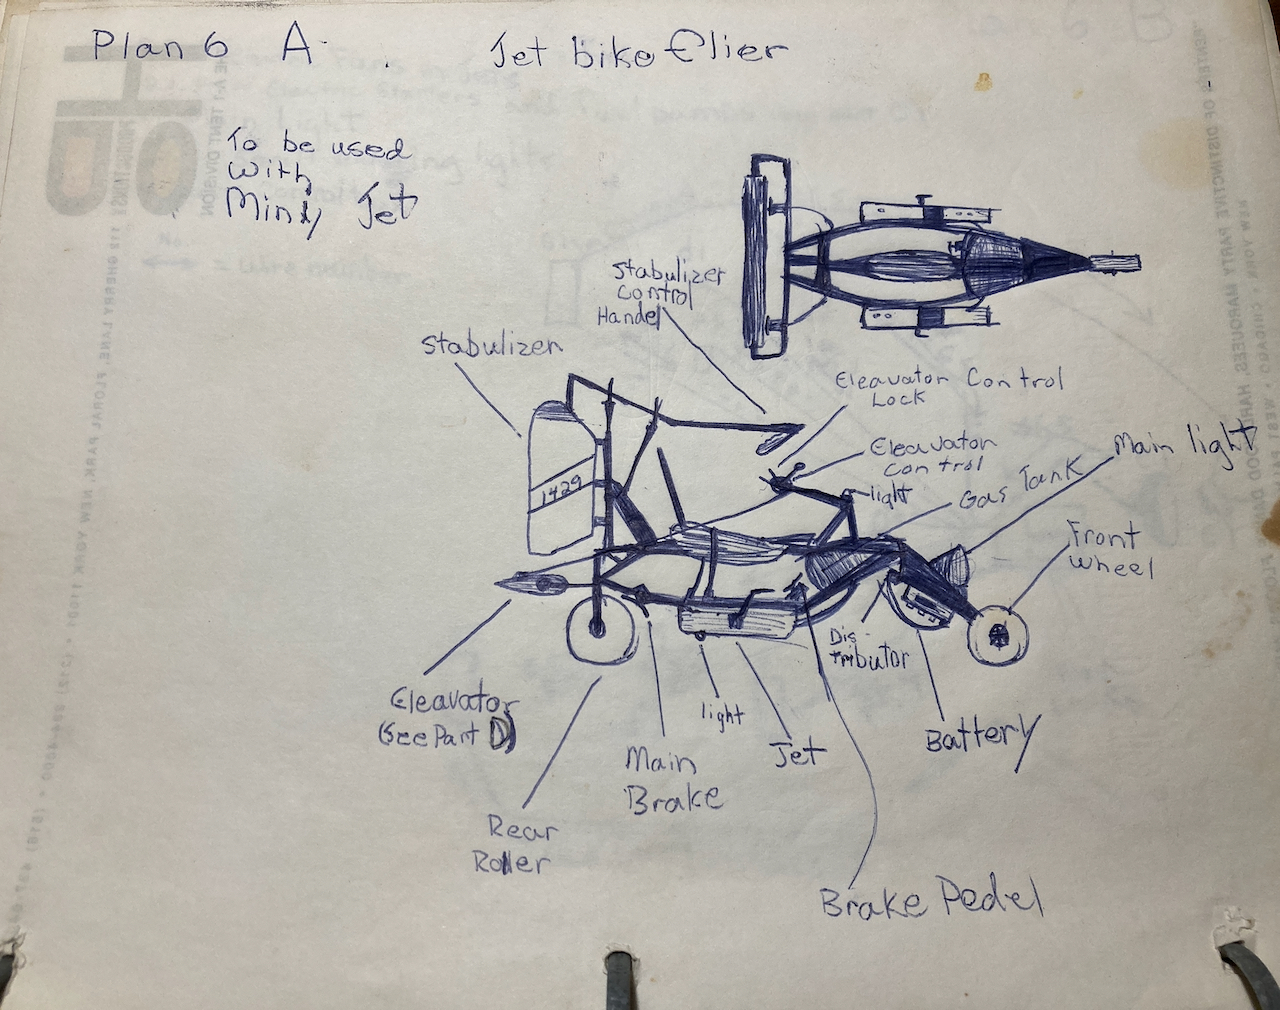 Plan 6 A
Jet bike Flier
To be used
with
Miny Jet
Stabulizer
Control
Handel
Stabulizer
Eleavator Control
Lock
Eleavator
control
light
Gas Tank
Main light
Front
wheel
1429
Dis-
tributor
Eleavator
(See Part D)
light
Battery
Main
Brake
Jet
Rear
Roller
Brake Pedel